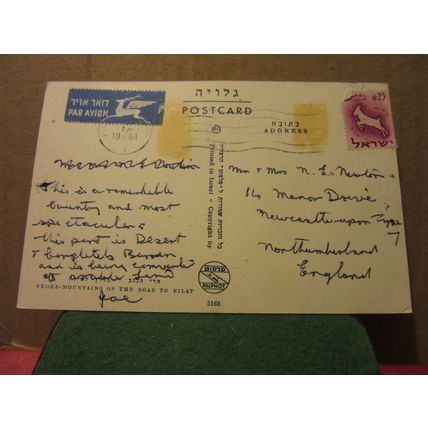 גלויה
POSTCARD
דואר אויר
PAR AVION
10 64
0.25
ישראל
כתובת
ADDRESS
This is a remarkable
country and most
spectacular.
This part is Desert
& completely Barren
and is being
Joe
Printed in Israel - Copyright by
Mr & Mrs N. L. Newton
14 Manor Drive
Newcastle-upon Tyne
7
Northumberland
England
הרי הנגב
NEGEB-MOUNTAINS ON THE ROAD TO EILAT
פלפוט
PALPHOT
5163